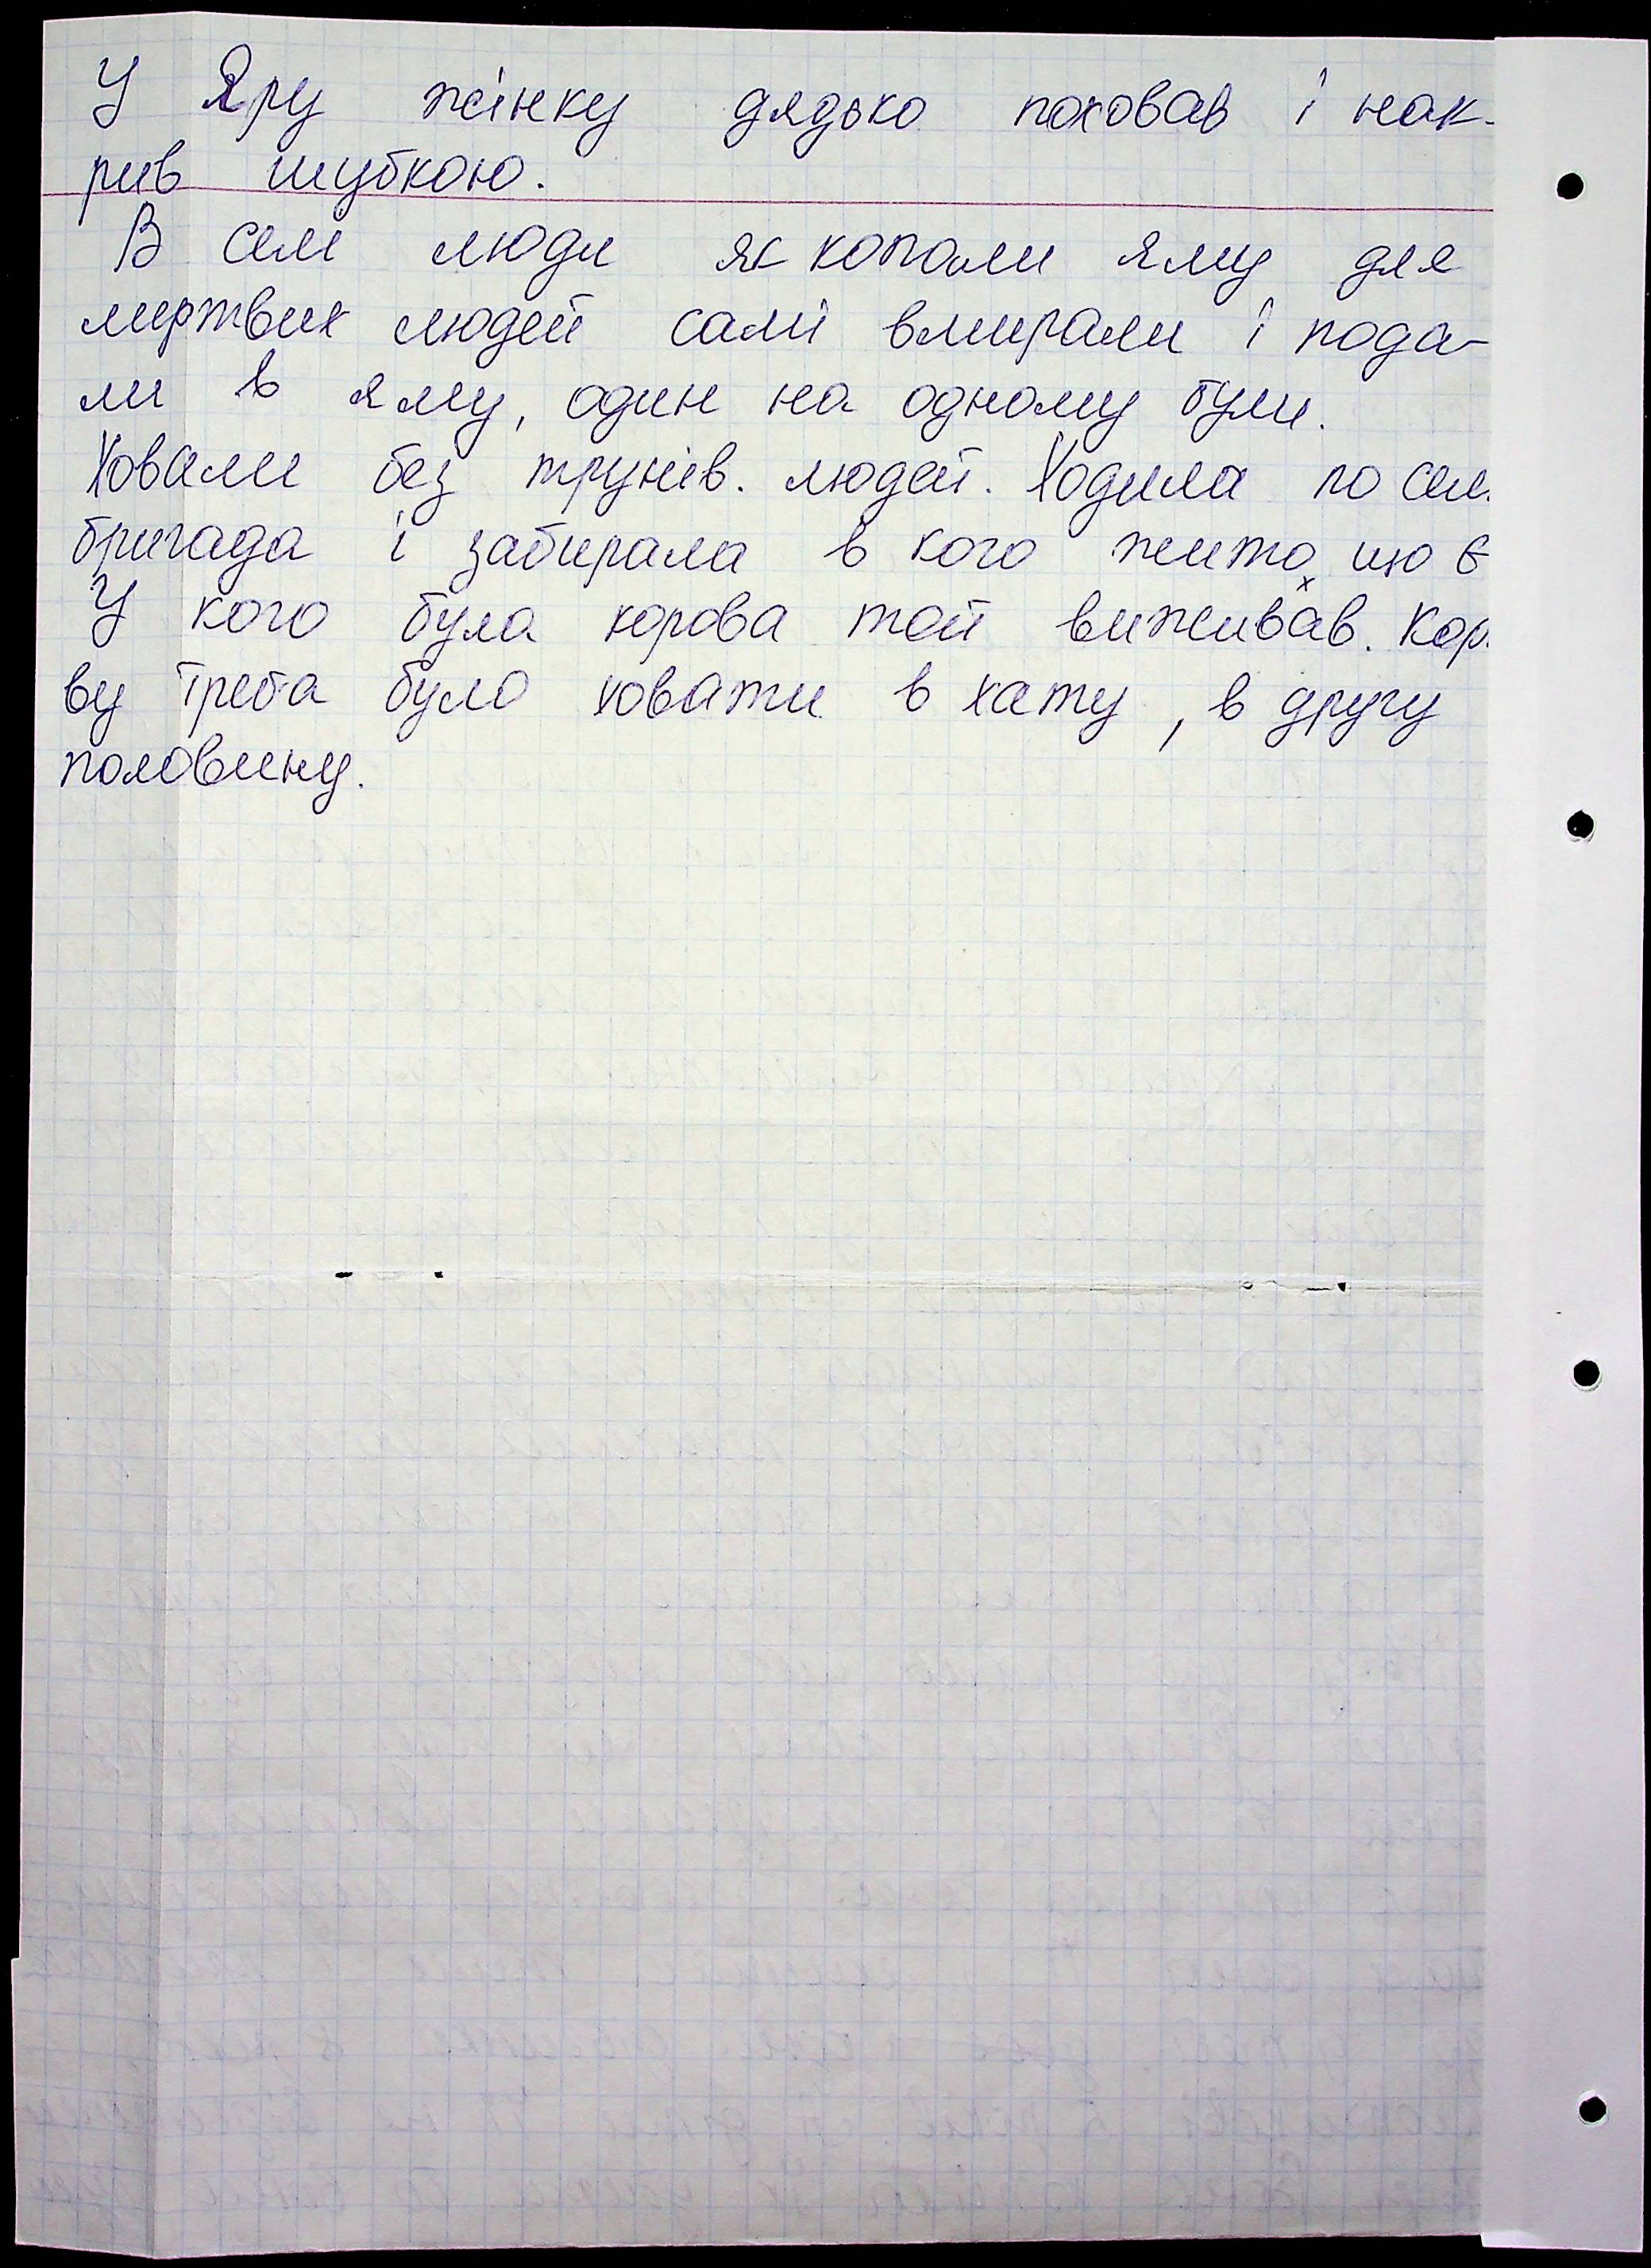 У Яру жінку дядько поховав і нак-
рив шубкою.
В селі люди як копали яму для
мертвих людей самі вмирали і пада-
ли в яму, один на одному були.
Ховали без трунів. людей. Ходила по сел
бригада і забирала в кого жито що є
У кого була корова той виживав. Кор
ву треба було ховати в хату, в другу
половину.